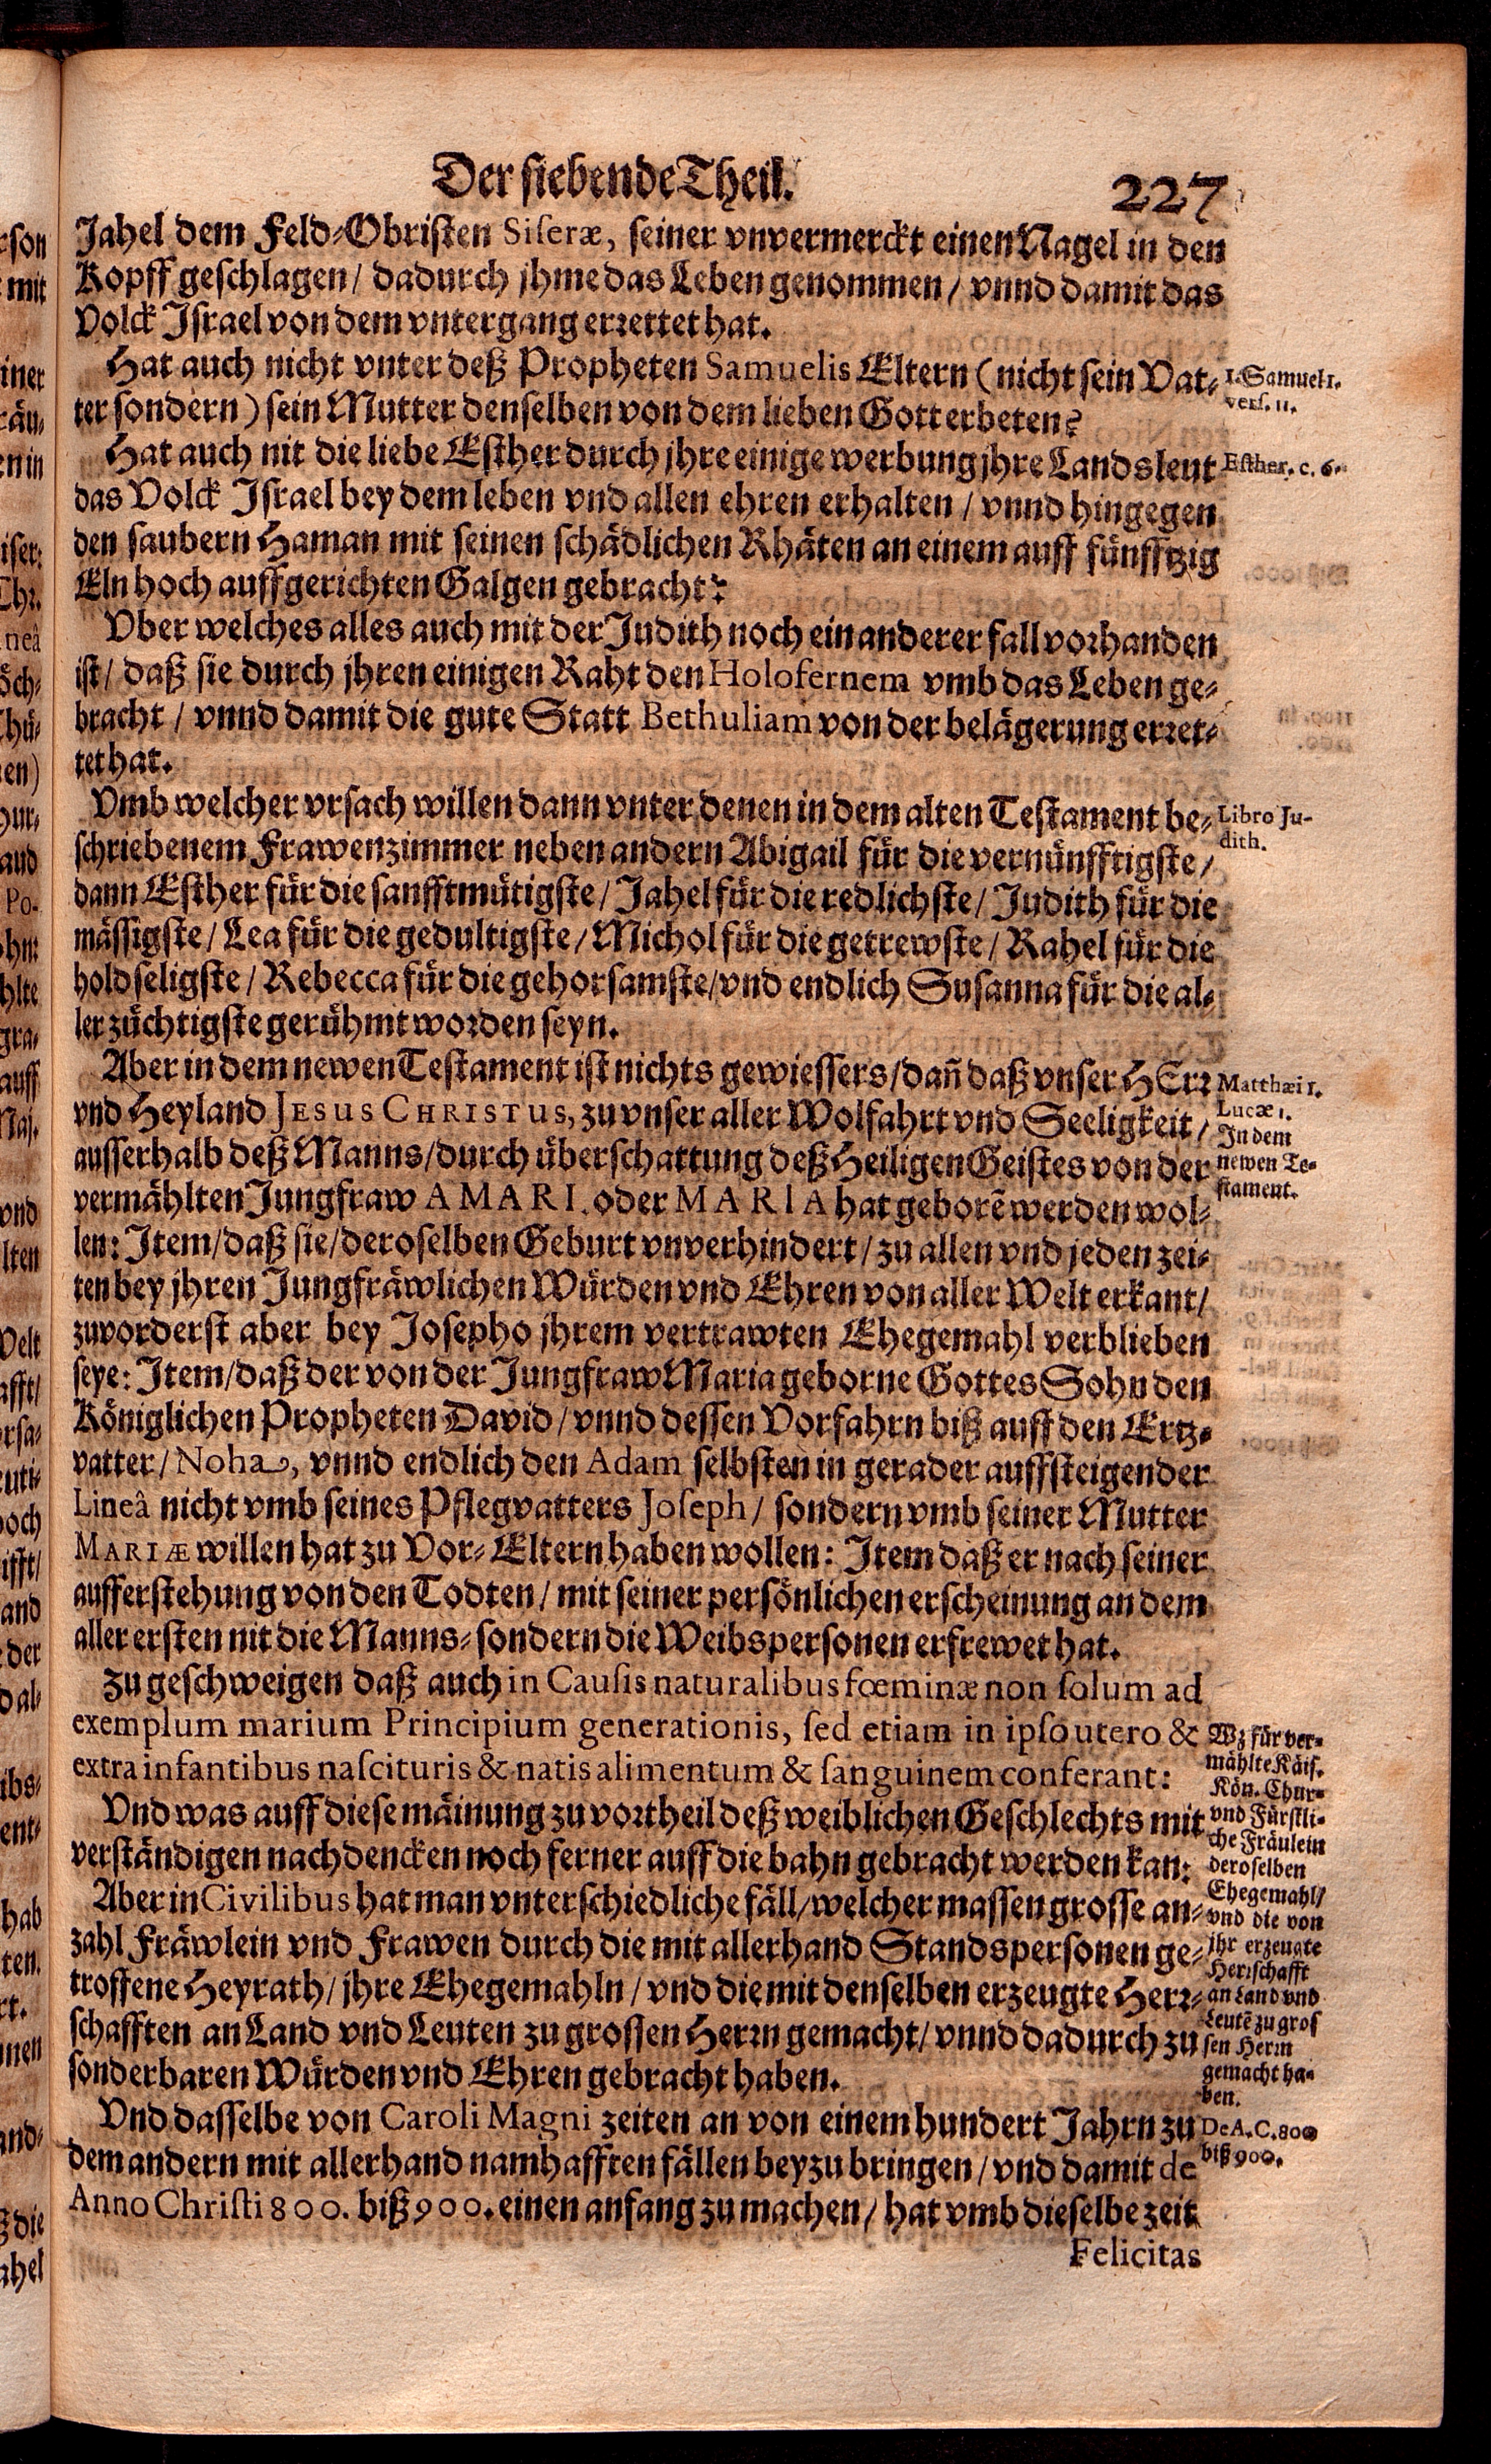 Der siebende Theil.
227
Jahel dem Feld-Obristen Siseræ, seiner vnvermerckt einen Nagel in den
Kopff geschlagen / dadurch jhme das Leben genommen / vnnd damit das
Volck Israel von dem vntergang errettet hat.
Hat auch nicht vnter deß Propheten Samuelis Eltern (nicht sein Vat-
ter sondern) sein Mutter denselben von dem lieben Gott erbeten?
1. Samuel 1.
vers. 11.
Hat auch nit die liebe Esther durch jhre einige werbung jhre Landsleut
das Volck Israel bey dem leben vnd allen ehren erhalten / vnnd hingegen
den saubern Haman mit seinen schädlichen Rhäten an einem auff fünfftzig
Eln hoch auffgerichten Galgen gebracht?
Esther. c. 6.
Vber welches alles auch mit der Judith noch ein anderer fall vorhanden
ist / daß sie durch jhren einigen Raht den Holofernem vmb das Leben ge-
bracht / vnnd damit die gute Statt Bethuliam von der belägerung erret-
tet hat.
Vmb welcher vrsach willen dann vnter denen in dem alten Testament be-
schriebenem Frawenzimmer neben andern Abigail für die vernünfftigste /
dann Esther für die sanfftmütigste / Jahel für die redlichste / Judith für die
mässigste / Lea für die gedultigste / Michol für die getrewste / Rahel für die
holdseligste / Rebecca für die gehorsamste / vnd endlich Susanna für die al-
ler züchtigste gerühmt worden seyn.
Libro Ju-
dith.
Aber in dem newen Testament ist nichts gewiessers / dañ daß vnser HErr
vnd Heyland JESUS CHRISTUS, zu vnser aller Wolfahrt vnd Seeligkeit /
ausserhalb deß Manns / durch überschattung deß Heiligen Geistes von der
vermählten Jungfraw AMARI. oder MARIA hat geborẽ werden wol-
len: Item / daß sie / deroselben Geburt vnverhindert / zu allen vnd jeden zei-
ten bey jhren Jungfräwlichen Würden vnd Ehren von aller Welt erkant /
zuvorderst aber bey Josepho jhrem vertrawten Ehegemahl verblieben
seye: Item / daß der von der Jungfraw Maria geborne Gottes Sohn den
Königlichen Propheten David / vnnd dessen Vorfahrn biß auff den Ertz-
vatter / Noha, vnnd endlich den Adam selbsten in gerader auffsteigender
Lineâ nicht vmb seines Pflegvatters Joseph / sondern vmb seiner Mutter
MARIÆ willen hat zu Vor-Eltern haben wollen: Item daß er nach seiner
aufferstehung von den Todten / mit seiner persönlichen erscheinung an dem
aller ersten nit die Manns- sondern die Weibspersonen erfrewet hat.
Matthæi 1.
Lucæ 1.
In dem
newen Te-
stament.
Zu geschweigen daß auch in Causis naturalibus fœminæ non solum ad
exemplum marium Principium generationis, sed etiam in ipso utero &
extra infantibus nascituris & natis alimentum & sanguinem conferant:
Vnd was auff diese mäinung zu vortheil deß weiblichen Geschlechts mit
verständigen nachdencken noch ferner auff die bahn gebracht werden kan:
Aber in Civilibus hat man vnterschiedliche fäll / welcher massen grosse an-
zahl Fräwlein vnd Frawen durch die mit allerhand Standspersonen ge-
troffene Heyrath / jhre Ehegemahln / vnd die mit denselben erzeugte Herr-
schafften an Land vnd Leuten zu grossen Herrn gemacht / vnnd dadurch zu
sonderbaren Würden vnd Ehren gebracht haben.
Wz für ver-
mählte Käis.
Kön. Chur-
vnd Fürstli-
che Fräulein
deroselben
Ehegemahl /
vnd die von
jhr erzeugte
Herrschafft
an Land vnd
Leutẽ zu gros
sen Herrn
gemacht ha-
ben.
Vnd dasselbe von Caroli Magni zeiten an von einem hundert Jahrn zu
dem andern mit allerhand namhafften fällen beyzubringen / vnd damit de
Anno Christi 800. biß 900. einen anfang zu machen / hat vmb dieselbe zeit
De A. C. 800
biß 900.
Felicitas